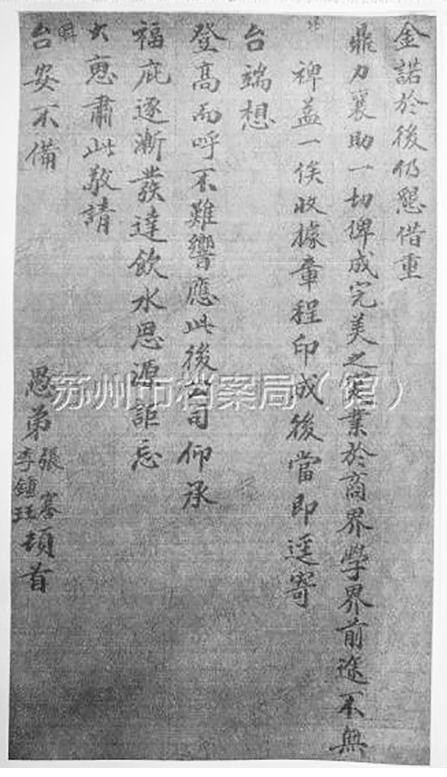 金諾於後仍懇借重
鼎力襄助一切俾成完美之實業於商界學界前途不無
裨益一俟收據章程印成後當即逕寄
台端想
登高而呼不難響應此後公司仰承
福庇逐漸發達飲水思源詎忘
大惠肅此敬請
台安不備
愚弟張謇李鍾珏頓首
苏州市档案局（馆）